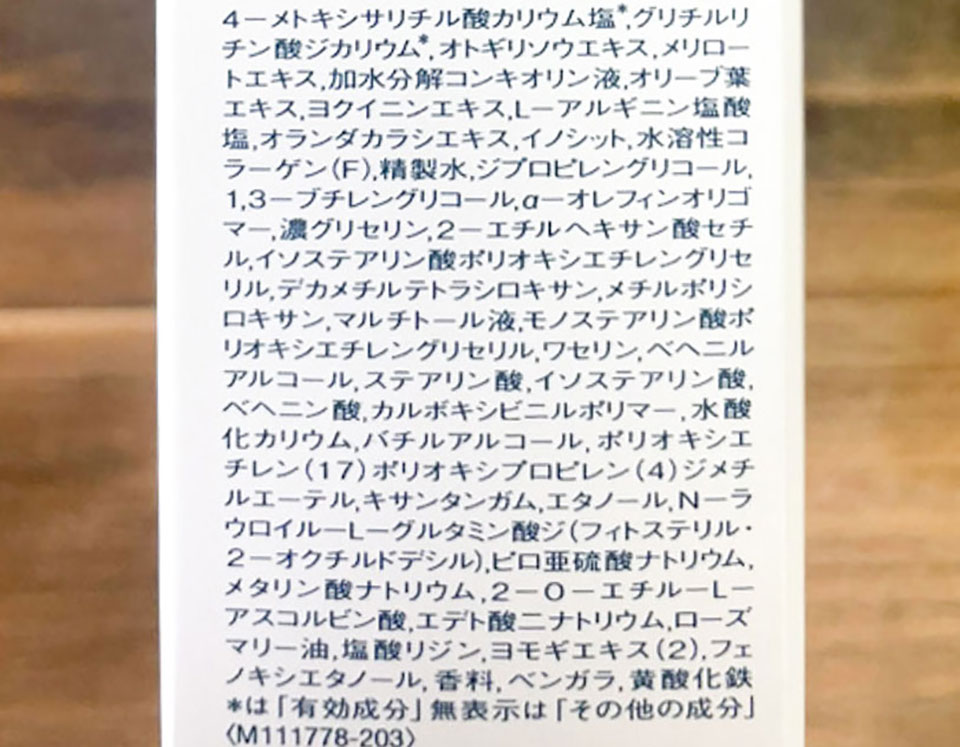 4－メトキシサリチル酸カリウム塩*,グリチルリ
チン酸ジカリウム*,オトギリソウエキス,メリロー
トエキス,加水分解コンキオリン液,オリーブ葉
エキス,ヨクイニンエキス,L－アルギニン塩酸
塩,オランダカラシエキス,イノシット,水溶性コ
ラーゲン(F),精製水,ジプロピレングリコール,
1,3－ブチレングリコール,α－オレフィンオリゴ
マー,濃グリセリン,2－エチルヘキサン酸セチ
ル,イソステアリン酸ポリオキシエチレングリセ
リル,デカメチルテトラシロキサン,メチルポリシ
ロキサン,マルチトール液,モノステアリン酸ポ
リオキシエチレングリセリル,ワセリン,ベヘニル
アルコール,ステアリン酸,イソステアリン酸,
ベヘニン酸,カルボキシビニルポリマー,水酸
化カリウム,バチルアルコール,ポリオキシエ
チレン(17)ポリオキシプロピレン(4)ジメチ
ルエーテル,キサンタンガム,エタノール,N－ラ
ウロイル－L－グルタミン酸ジ(フィトステリル・
2－オクチルドデシル),ピロ亜硫酸ナトリウム,
メタリン酸ナトリウム,2－O－エチル－L－
アスコルビン酸,エデト酸二ナトリウム,ローズ
マリー油,塩酸リジン,ヨモギエキス(2),フェ
ノキシエタノール,香料,ベンガラ,黄酸化鉄
*は「有効成分」無表示は「その他の成分」
〈M111778-203〉